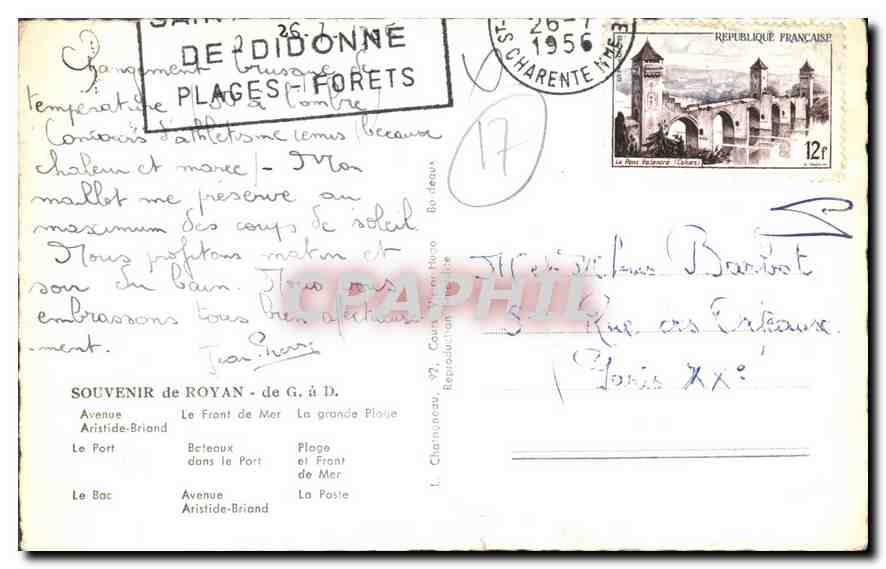 SAINT
DE-DIDONNE
PLAGES-FORETS
26-7
1956
CHARENTE MME
REPUBLIQUE FRANÇAISE
POSTES
Le Pont Valentré (Cahors)
12F
17
26.7
Changement brusque de
température (30° à l'ombre)
Concours d'athlétisme remis (because
chaleur et marée) - Mon
maillot me préserve au
maximum des coups de soleil.
Nous profitons matin et
soir du bain. Nous vous
embrassons tous bien affectueuse-
-ment.
Jean-Pierre
Barbot
Rue des
Paris XXe
SOUVENIR de ROYAN - de G. à D.
Avenue Aristide-Briand Le Front de Mer La grande Plage
Le Port Bateaux dans le Port Plage et Front de Mer
Le Bac Avenue Aristide-Briand La Poste
Chatagneau, 92, Cours Victor-Hugo Bordeaux
Reproduction Interdite
CPAPHIL